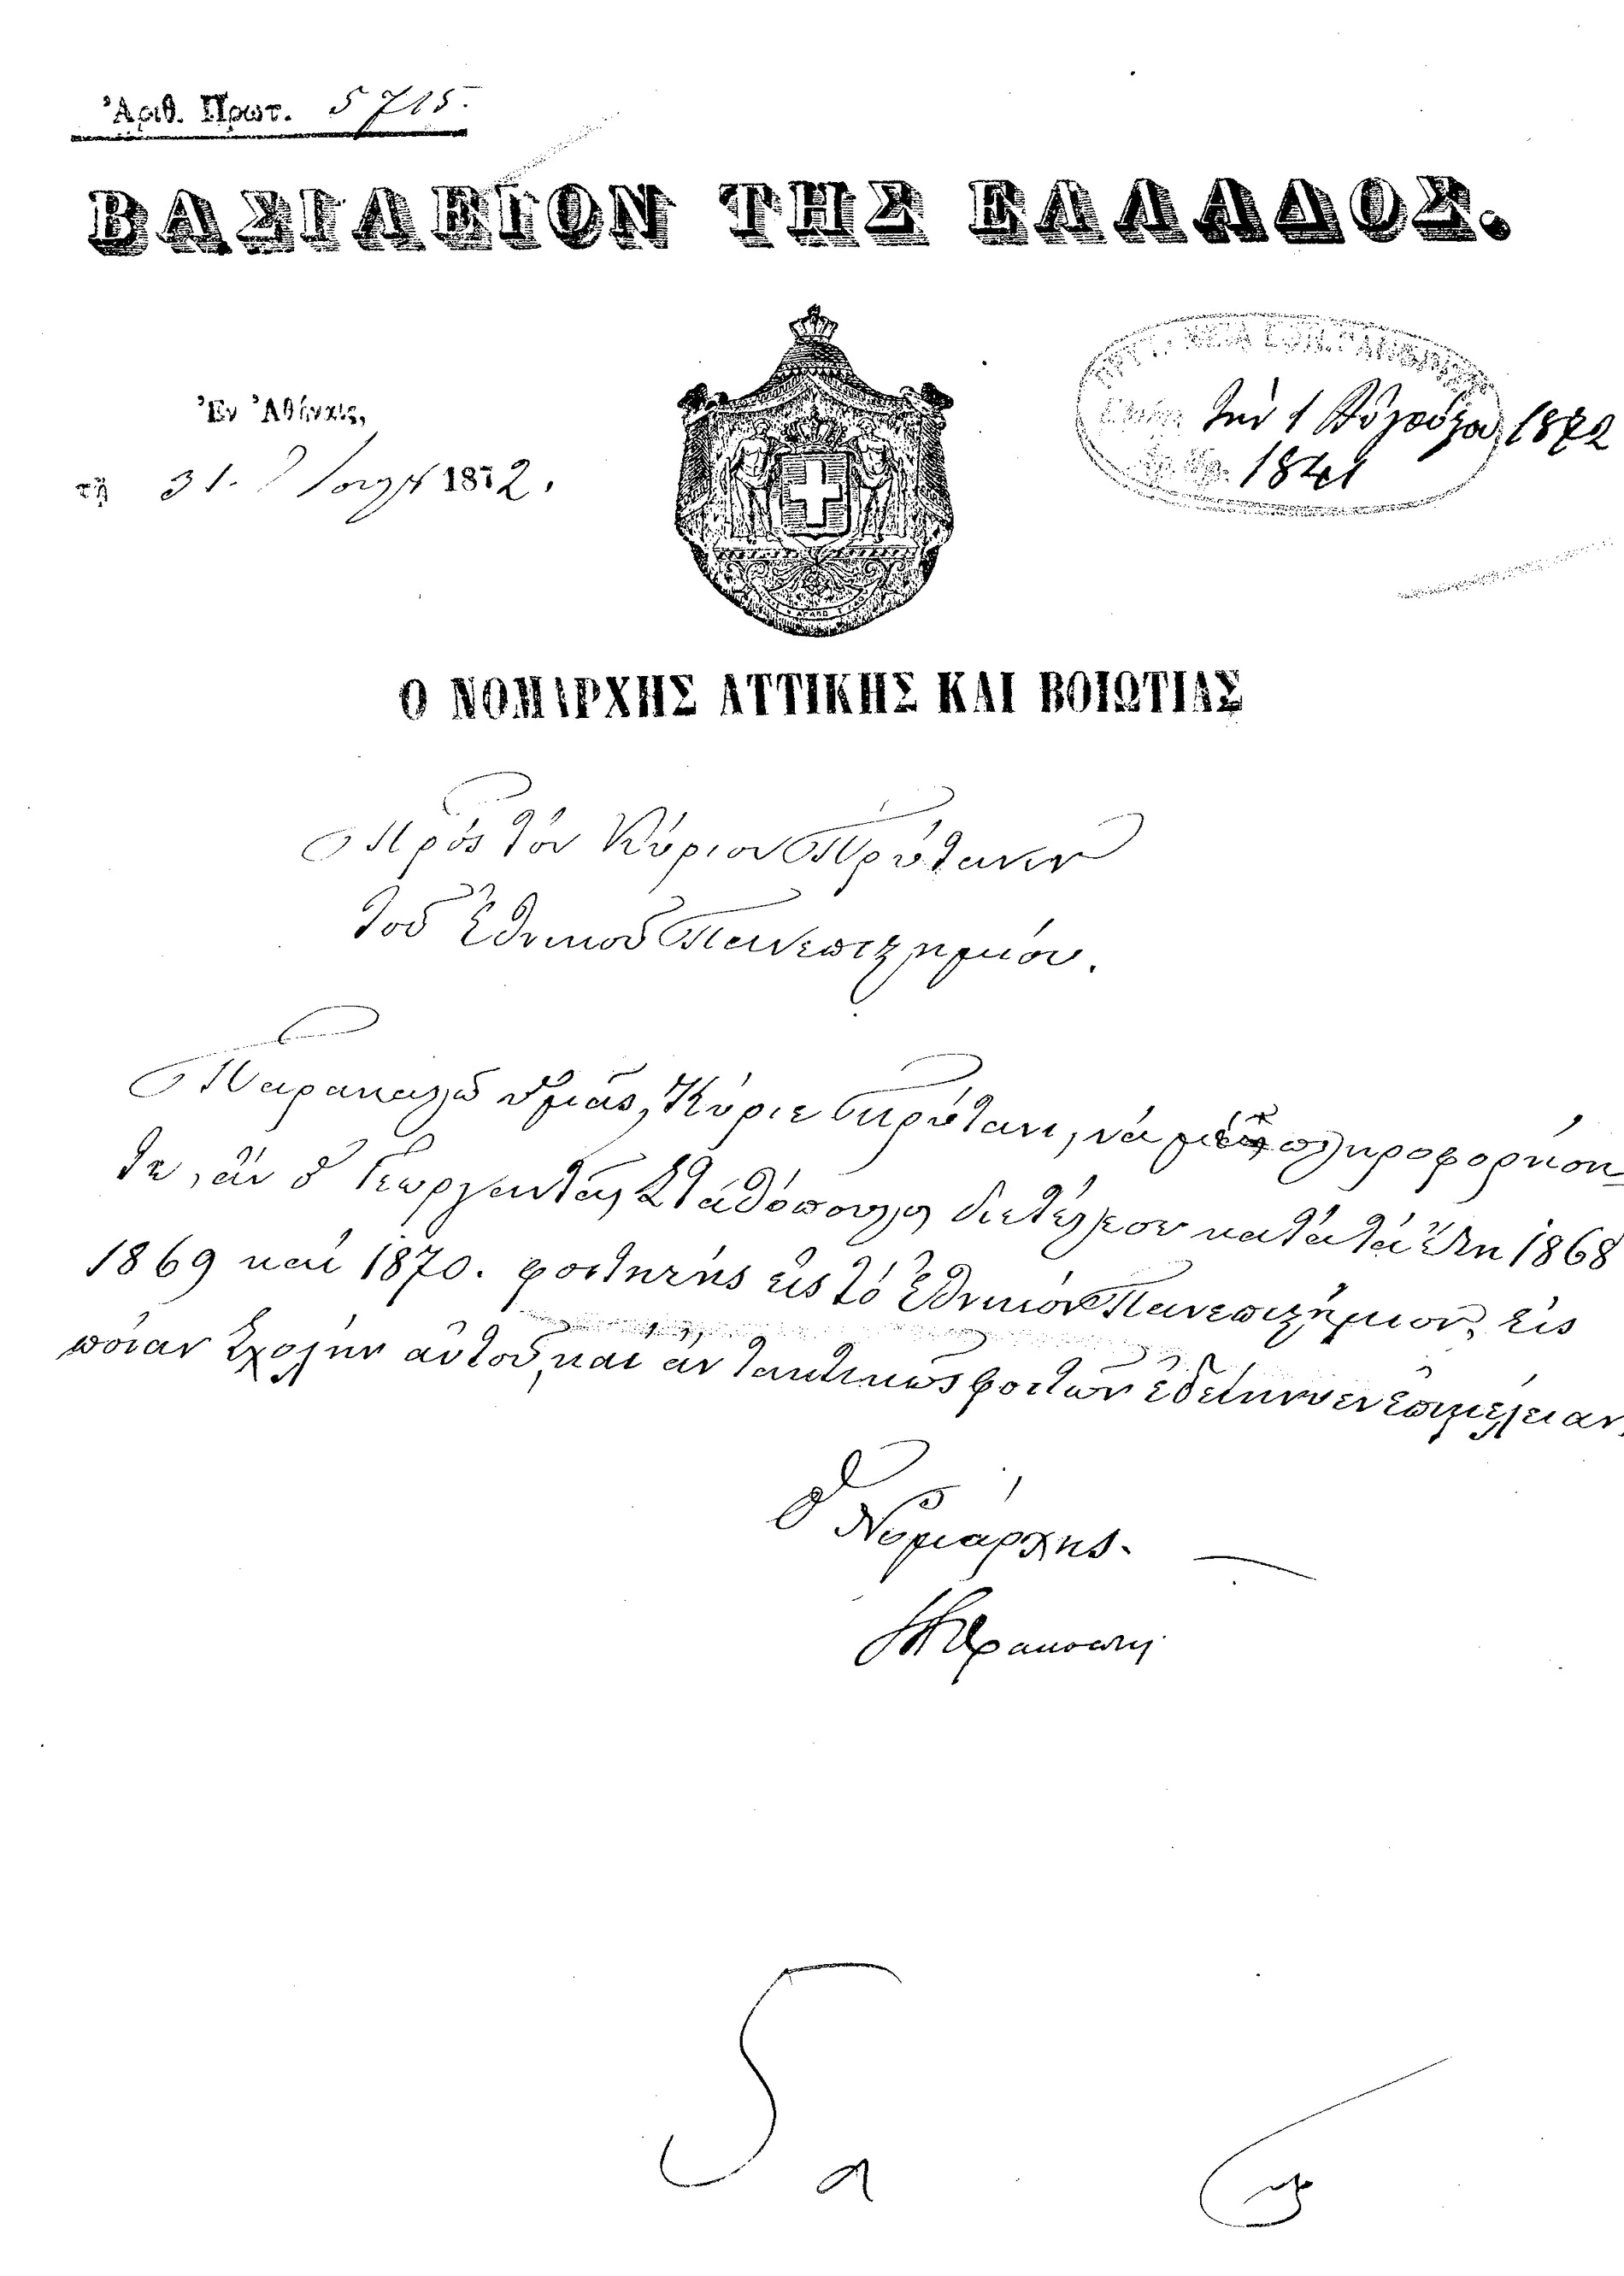 Ἀριθ. Πρωτ. 5715.
ΒΑΣΙΛΕΙΟΝ ΤΗΣ ΕΛΛΑΔΟΣ.
Ἐν Ἀθήναις,
τῇ 31. Ἰουλ 1872.
ΠΡΥΤΑΝΕΙΑ ΕΘΝ. ΠΑΝΕΠΙΣΤ
τὴν 1 Αὐγούστου 1872
Ἀρ. Πρ. 1841
Ο ΝΟΜΑΡΧΗΣ ΑΤΤΙΚΗΣ ΚΑΙ ΒΟΙΩΤΙΑΣ
Πρὸς τὸν Κύριον Πρύτανιν
τοῦ Ἐθνικοῦ Πανεπιστημίου.
Παρακαλῶ ὑμᾶς, Κύριε Πρύτανι, νὰ μὲ πληροφορήση-
τε, ἂν ὁ Γεωργαντᾶς Σταθόπουλος διετέλεσεν κατὰ τὰ ἔτη 1868
1869 καὶ 1870. φοιτητὴς εἰς τὸ Ἐθνικὸν Πανεπιστήμιον, εἰς
ποίαν Σχολὴν αὐτοῦ, καὶ ἂν τακτικῶς φοιτῶν ἐδείκνυεν ἐπιμέλειαν,
Ὁ Νομάρχης.